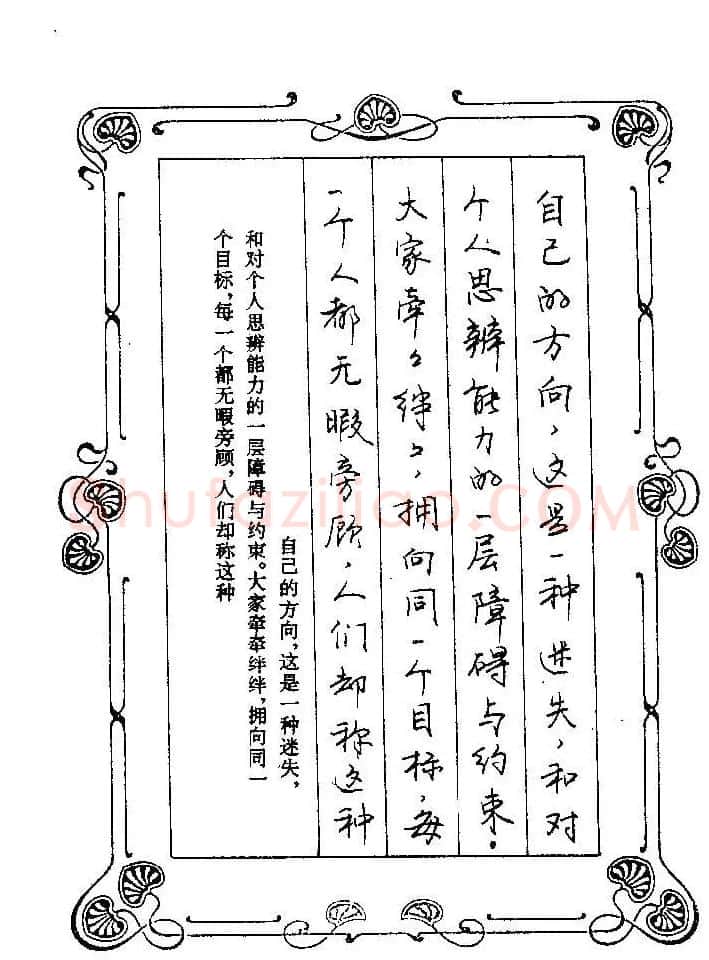 自己的方向，这是一种迷失，和对
个人思辨能力的一层障碍与约束.
大家牵々绊々，拥向同一个目标，每
一个人都无暇旁顾，人们却称这种
自己的方向，这是一种迷失，
和对个人思辨能力的一层障碍与约束。大家牵牵绊绊，拥向同一
个目标，每一个都无暇旁顾，人们却称这种
Shufaziliao.COM